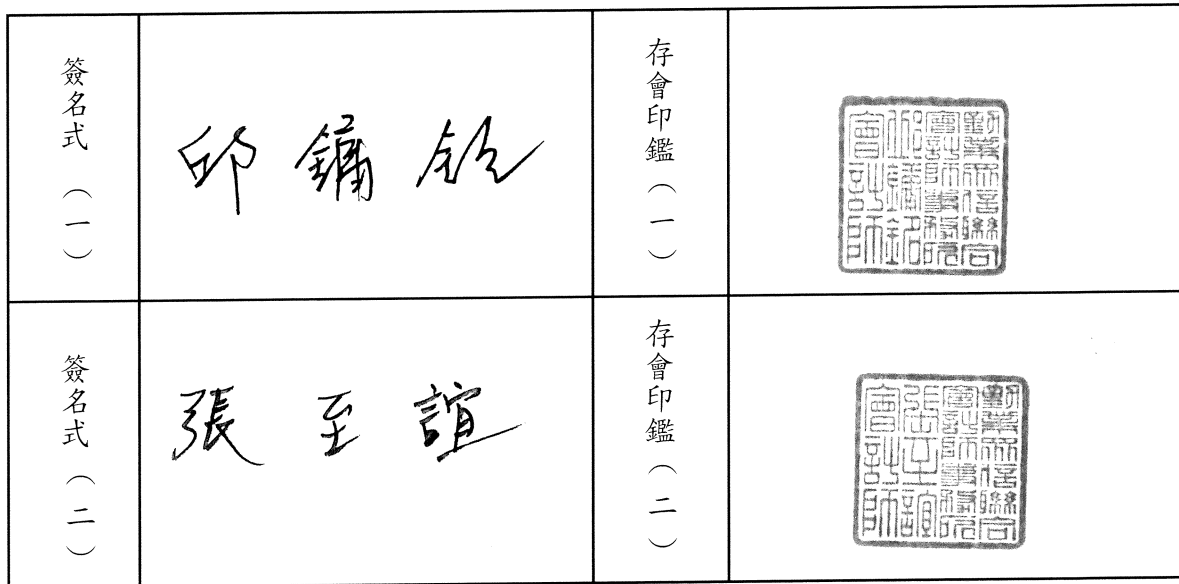 簽名式（一）
邱鏞銘
存會印鑑（一）
勤業眾信聯合
會計師事務所
邱鏞銘
會計師
簽名式（二）
張至誼
存會印鑑（二）
勤業眾信聯合
會計師事務所
張至誼
會計師